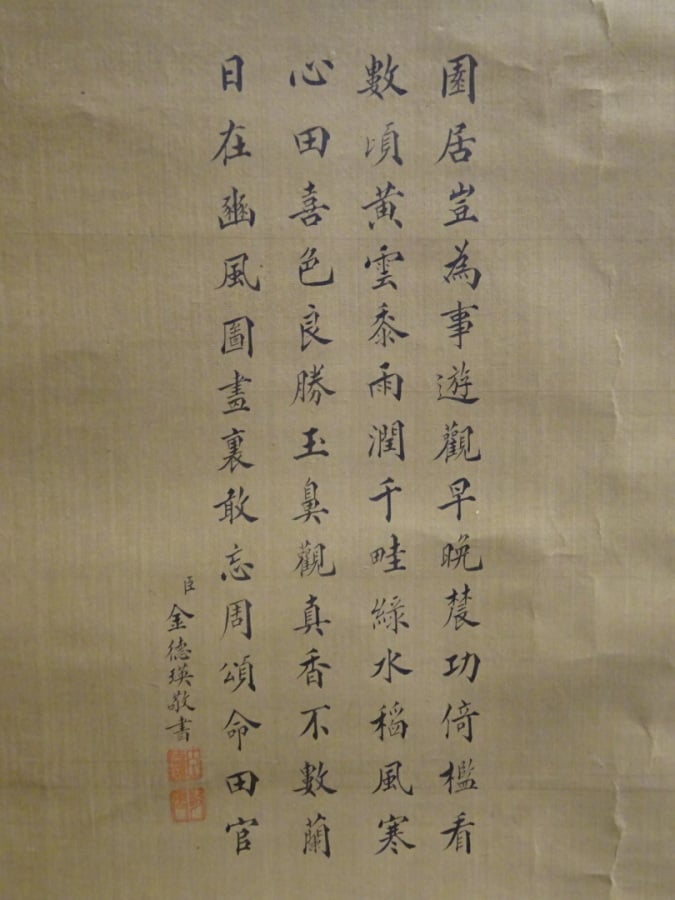 園居豈為事遊觀早晚農功倚檻看
數頃黃雲黍雨潤千畦綠水稻風寒
心田喜色良勝玉鼻觀真香不數蘭
日在豳風圖畫裏敢忘周頌命田官
臣金德瑛敬書